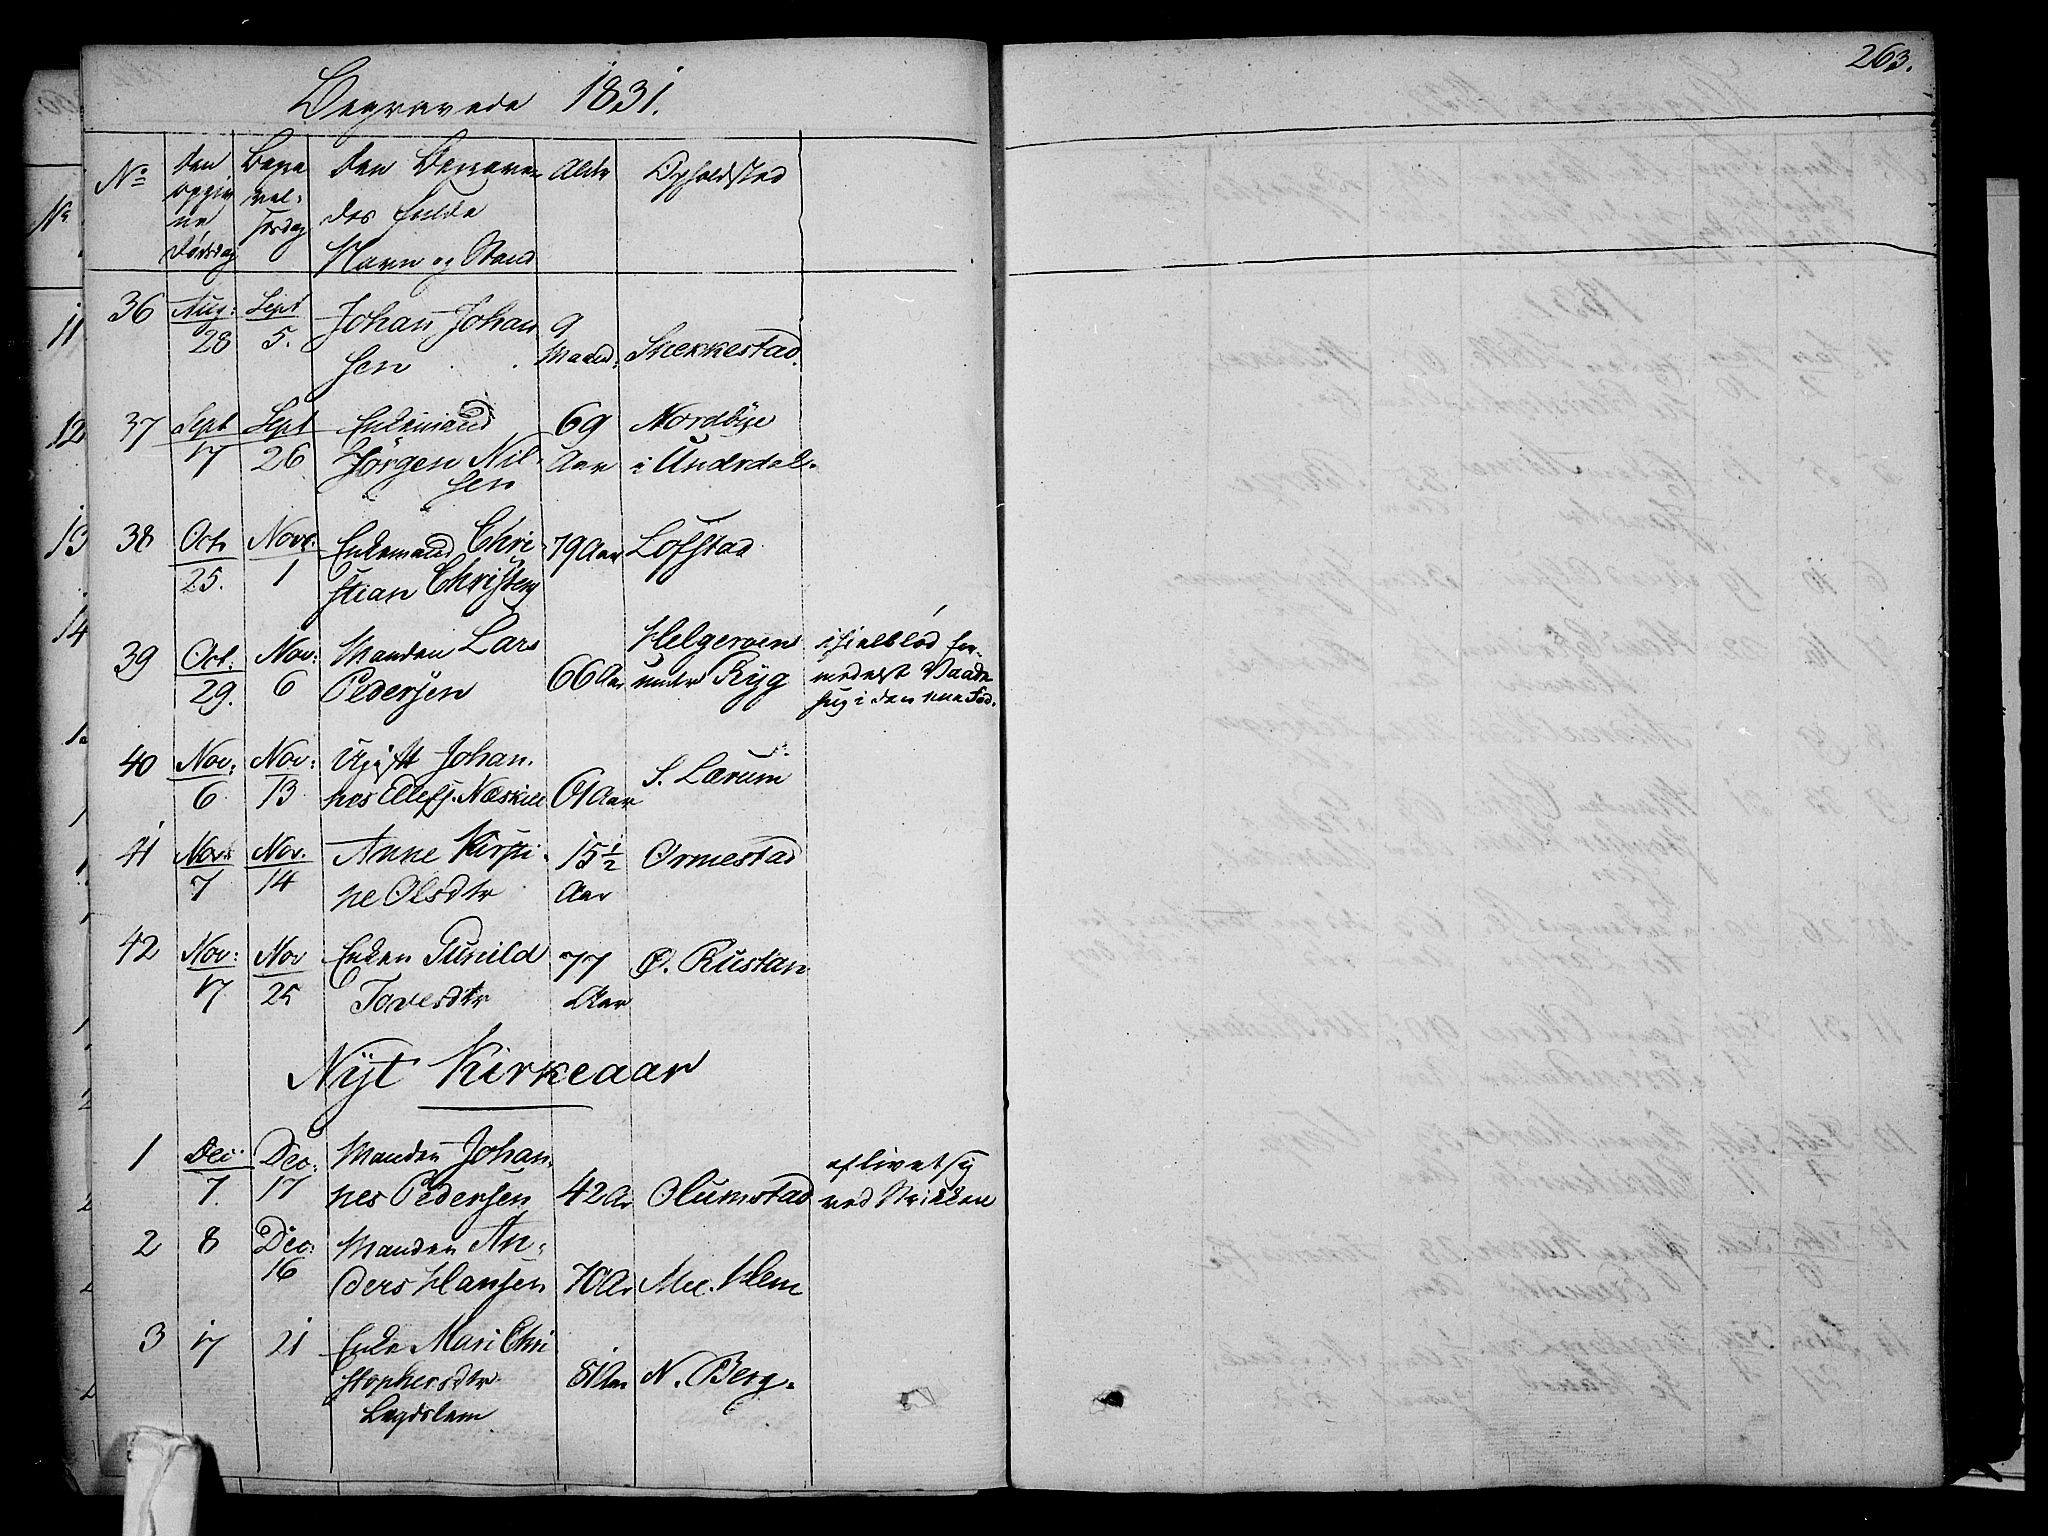 263.
Begravede 1831.
No
den opgivne Dödsdag
Begravelsesdag
den Begravedes fulde Navn og Stand
Alder
Opholdsted
36 Aug: 28 Sept 5. Johan Johansen 9 Maaned: Snekkestad.
37 Sept 17 Sept 26 Enkemand Jörgen Nilsen 69 Aar Nordbÿe i Undrdal.
38 Oct. 25. Novr. 1 Enkemand Christian Christens 79 Aar Lofstad
39 Oct: 29. Nov: 6 Manden Lars Pedersen 66 Aar Helgeroen under Ryg ihielblöd formedelst Vaadehug i den ene Fod.
40 Nov: 6 Nov: 13 Ugift Johannes Ellefs. Næskile 61 Aar S. Lærum
41 Novr. 7 Nov. 14 Anne Kirstine Olsdtr 15 1/2 Aar Ormestad
42 Nov: 17 Nov 25 Enken Gunild Tovesdtr 77 Aar Ø. Rustan
Nÿt Kirkeaar
1 Dec. 7. Dec: 17 Manden Johannes Pedersen 42 Ar Olumstad aflivet sig ved Strikken
2 8 Dec: 16 Manden Anders Hansen 70 Ar Mel. Hem
3 17 21 Enke Mari Christophersdtr Lægdslem 81 Aar N. Berg.
11
12
13
14